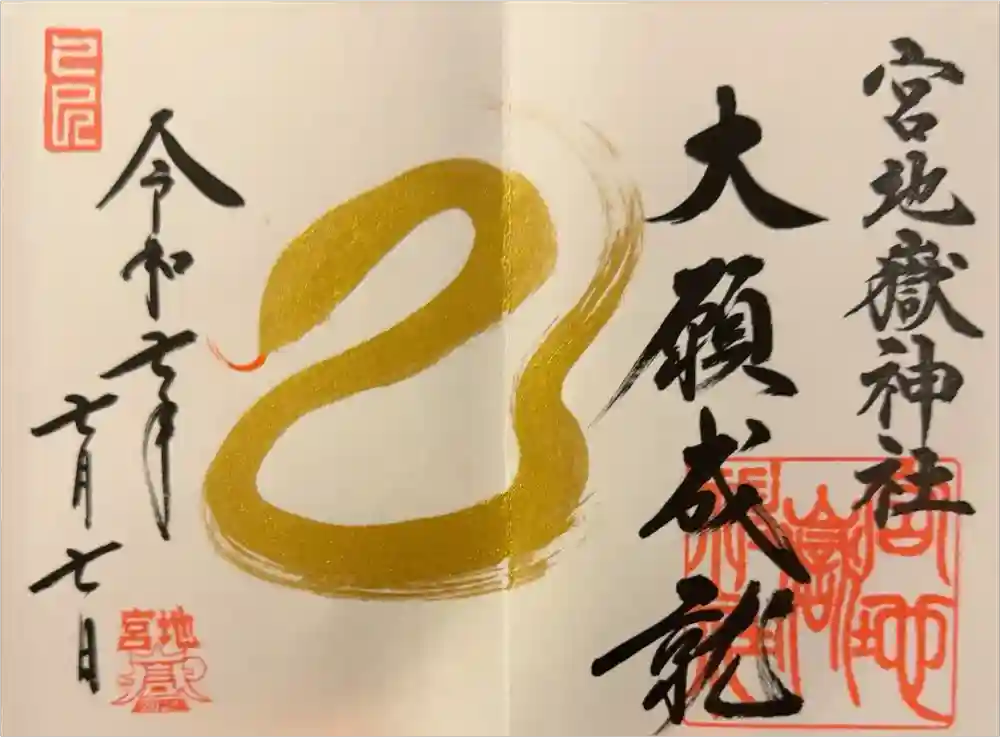 宮地嶽神社
大願成就
令和七年
七月七日
己巳
宮地嶽